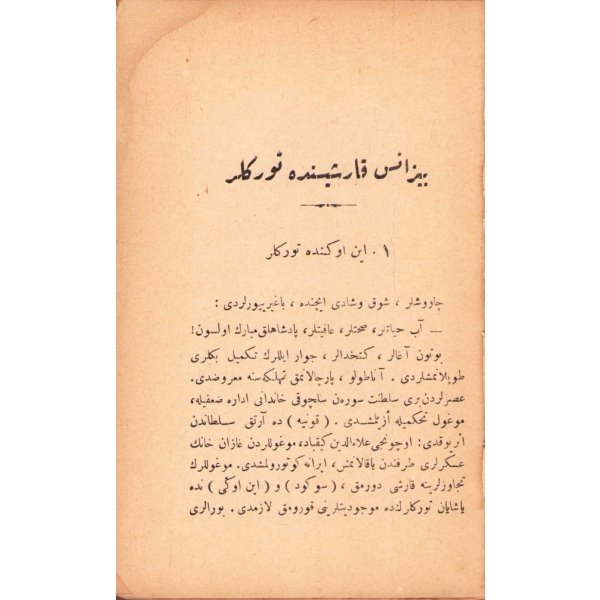 بیزانس قارشیسنده تورکلر
۱ . این اوکنده تورکلر
چاووشلر ، شوق وشادی ایچنده ، باغیرییورلردی :
— آب حیاتلر ، صحتلر ، عافیتلر ، پادشاهلق مبارك اولسون!
بوتون آغالر ، کتخدالر ، جوار ایللرك تکمیل بکلری
طوپلانمشلردی . آناطولو ، پارچالانمق تهلکه‌سنه معروضدی.
عصرلردن‌بری سلطنت سورەن سلچوقی خاندانی اداره ضعفیله ،
موغول تحکمیله أزیلمشدی . ( قونیه ) ده آرتق سلطاندن
اثر یوقدی : اوچونجی علاءالدین کیقباد ، موغوللردن غازان خانك
عسکرلری طرفندن یاقالانمش ، ایرانه کوتورولمشدی. موغوللرك
تجاوزلرینه قارشی دورمق ، ( سوکود ) و ( این اوکی ) نده
یاشایان تورکلرك‌ده موجودیتلرینی قورومق لازمدی . بورالری